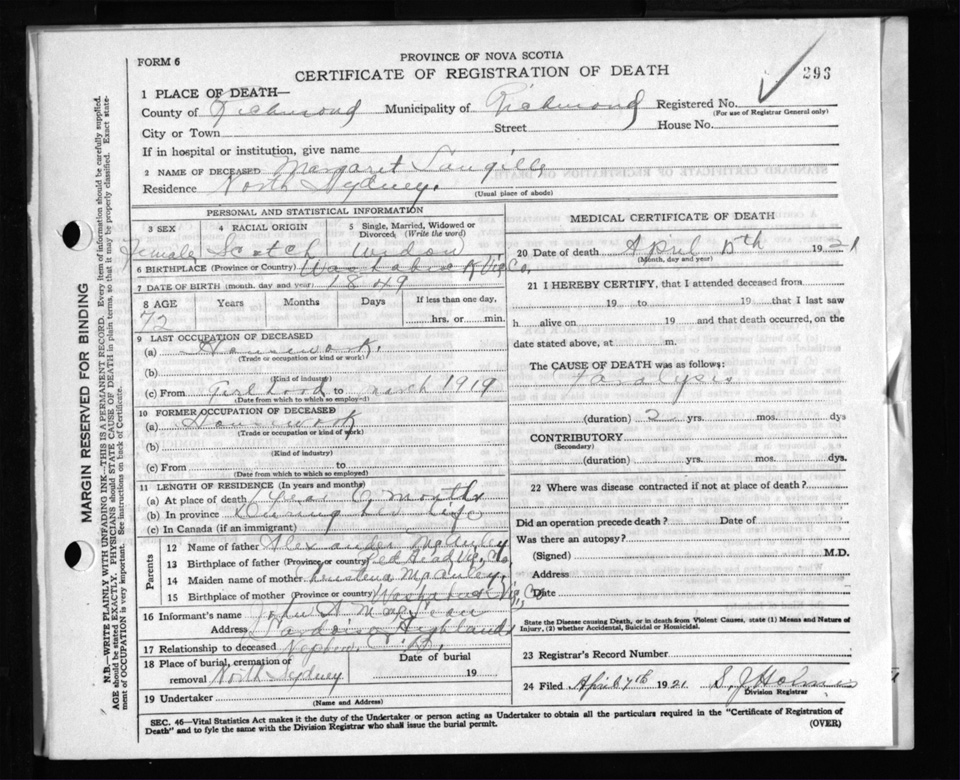 FORM 6
PROVINCE OF NOVA SCOTIA
CERTIFICATE OF REGISTRATION OF DEATH
293
1 PLACE OF DEATH—
County of Richmond Municipality of Richmond Registered No.
(For use of Registrar General only)
City or Town Street House No.
If in hospital or institution, give name
2 NAME OF DECEASED Margaret Langille
Residence North Sydney.
(Usual place of abode)
PERSONAL AND STATISTICAL INFORMATION
3 SEX 4 RACIAL ORIGIN 5 Single, Married, Widowed or Divorced (Write the word)
Female Scotch Widow
6 BIRTHPLACE (Province or Country) Vic Co,
7 DATE OF BIRTH (month, day and year) 1849
8 AGE Years Months Days If less than one day,
72 hrs. or min.
9 LAST OCCUPATION OF DECEASED
(a) Housework.
(Trade or occupation or kind of work)
(b)
(Kind of industry)
(c) From Girlhood to March 1919
(Date from which to which so employed)
10 FORMER OCCUPATION OF DECEASED
(a) Housework
(Trade or occupation or kind of work)
(b)
(Kind of industry)
(c) From to
(Date from which to which so employed)
11 LENGTH OF RESIDENCE (In years and months)
(a) At place of death 1 Year 9 Months
(b) In province During her life
(c) In Canada (if an immigrant)
Parents
12 Name of father Alexander McAuley
13 Birthplace of father (Province or country) Red Head Vic, Co,
14 Maiden name of mother McAuley
15 Birthplace of mother (Province or country) Vic, Co
16 Informant's name John A MacLean
Address Highlands
17 Relationship to deceased Nephew
18 Place of burial, cremation or removal North Sydney Date of burial 19
19 Undertaker
(Name and Address)
MEDICAL CERTIFICATE OF DEATH
20 Date of death April 5th 1921
(Month, day and year)
21 I HEREBY CERTIFY, that I attended deceased from
19 to 19 that I last saw
h alive on 19 and that death occurred, on the
date stated above, at m.
The CAUSE OF DEATH was as follows:
Paralysis
(duration) 2 yrs. mos. dys
CONTRIBUTORY
(Secondary)
(duration) yrs. mos. dys.
22 Where was disease contracted if not at place of death?
Did an operation precede death? Date of
Was there an autopsy?
(Signed) M.D.
Address
Date
State the Disease causing Death, or in death from Violent Causes, state (1) Means and Nature of
Injury, (2) whether Accidental, Suicidal or Homicidal.
23 Registrar's Record Number
24 Filed April 7th 1921 S. J. Holmes
Division Registrar
SEC. 46—Vital Statistics Act makes it the duty of the Undertaker or person acting as Undertaker to obtain all the particulars required in the "Certificate of Registration of
Death" and to fyle the same with the Division Registrar who shall issue the burial permit.
(OVER)
MARGIN RESERVED FOR BINDING
N.B.—WRITE PLAINLY WITH UNFADING INK—THIS IS A PERMANENT RECORD. Every item of information should be carefully supplied.
AGE should be stated EXACTLY. PHYSICIANS should STATE CAUSE OF DEATH in plain terms, so that it may be properly classified. Exact statement
of OCCUPATION is very important. See instructions on back of Certificate.